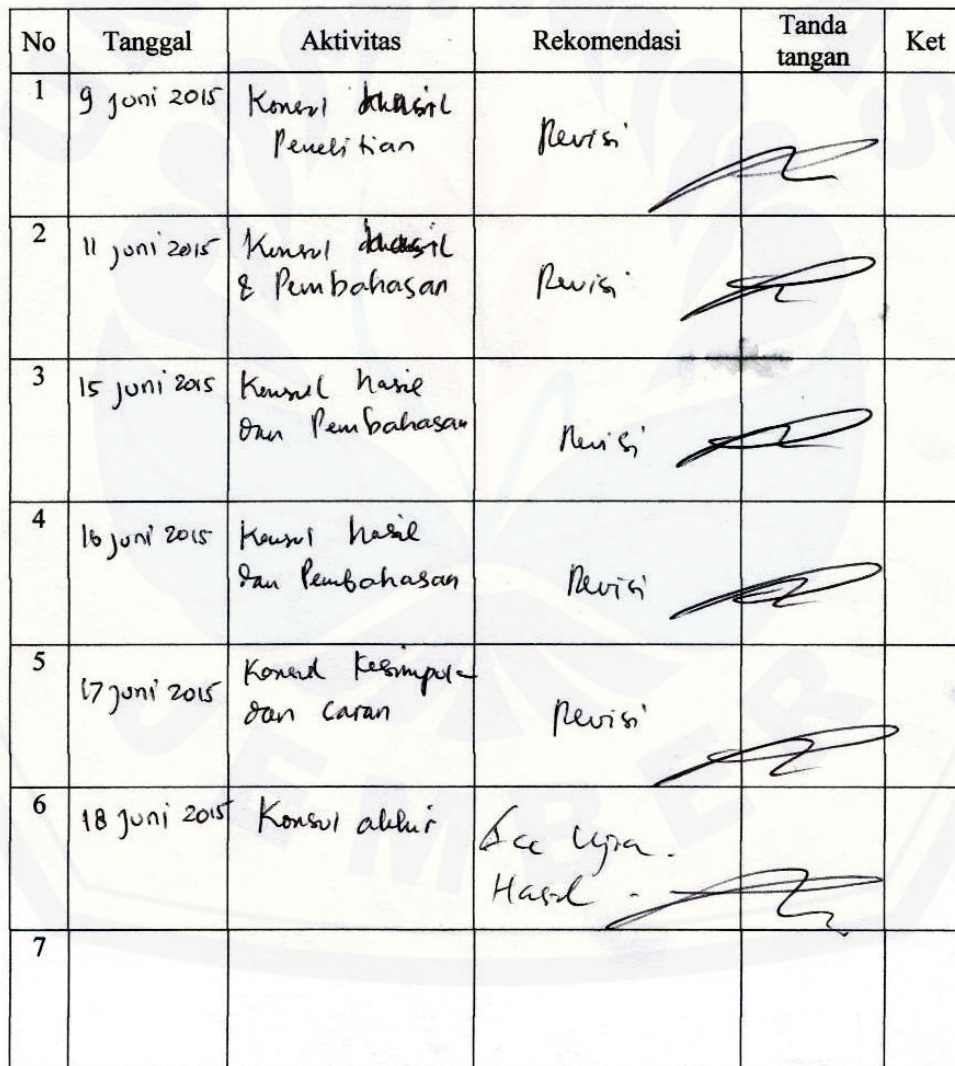 No Tanggal Aktivitas Rekomendasi Tanda tangan Ket
1 9 Juni 2015 Konsul hasil Penelitian Revisi
2 11 Juni 2015 Konsul hasil & Pembahasan Revisi
3 15 Juni 2015 Konsul hasil dan Pembahasan Revisi
4 16 Juni 2015 Konsul hasil dan Pembahasan Revisi
5 17 Juni 2015 Konsul Kesimpulan dan saran Revisi
6 18 Juni 2015 Konsul akhir Acc Ujian Hasil
7
JEMBER